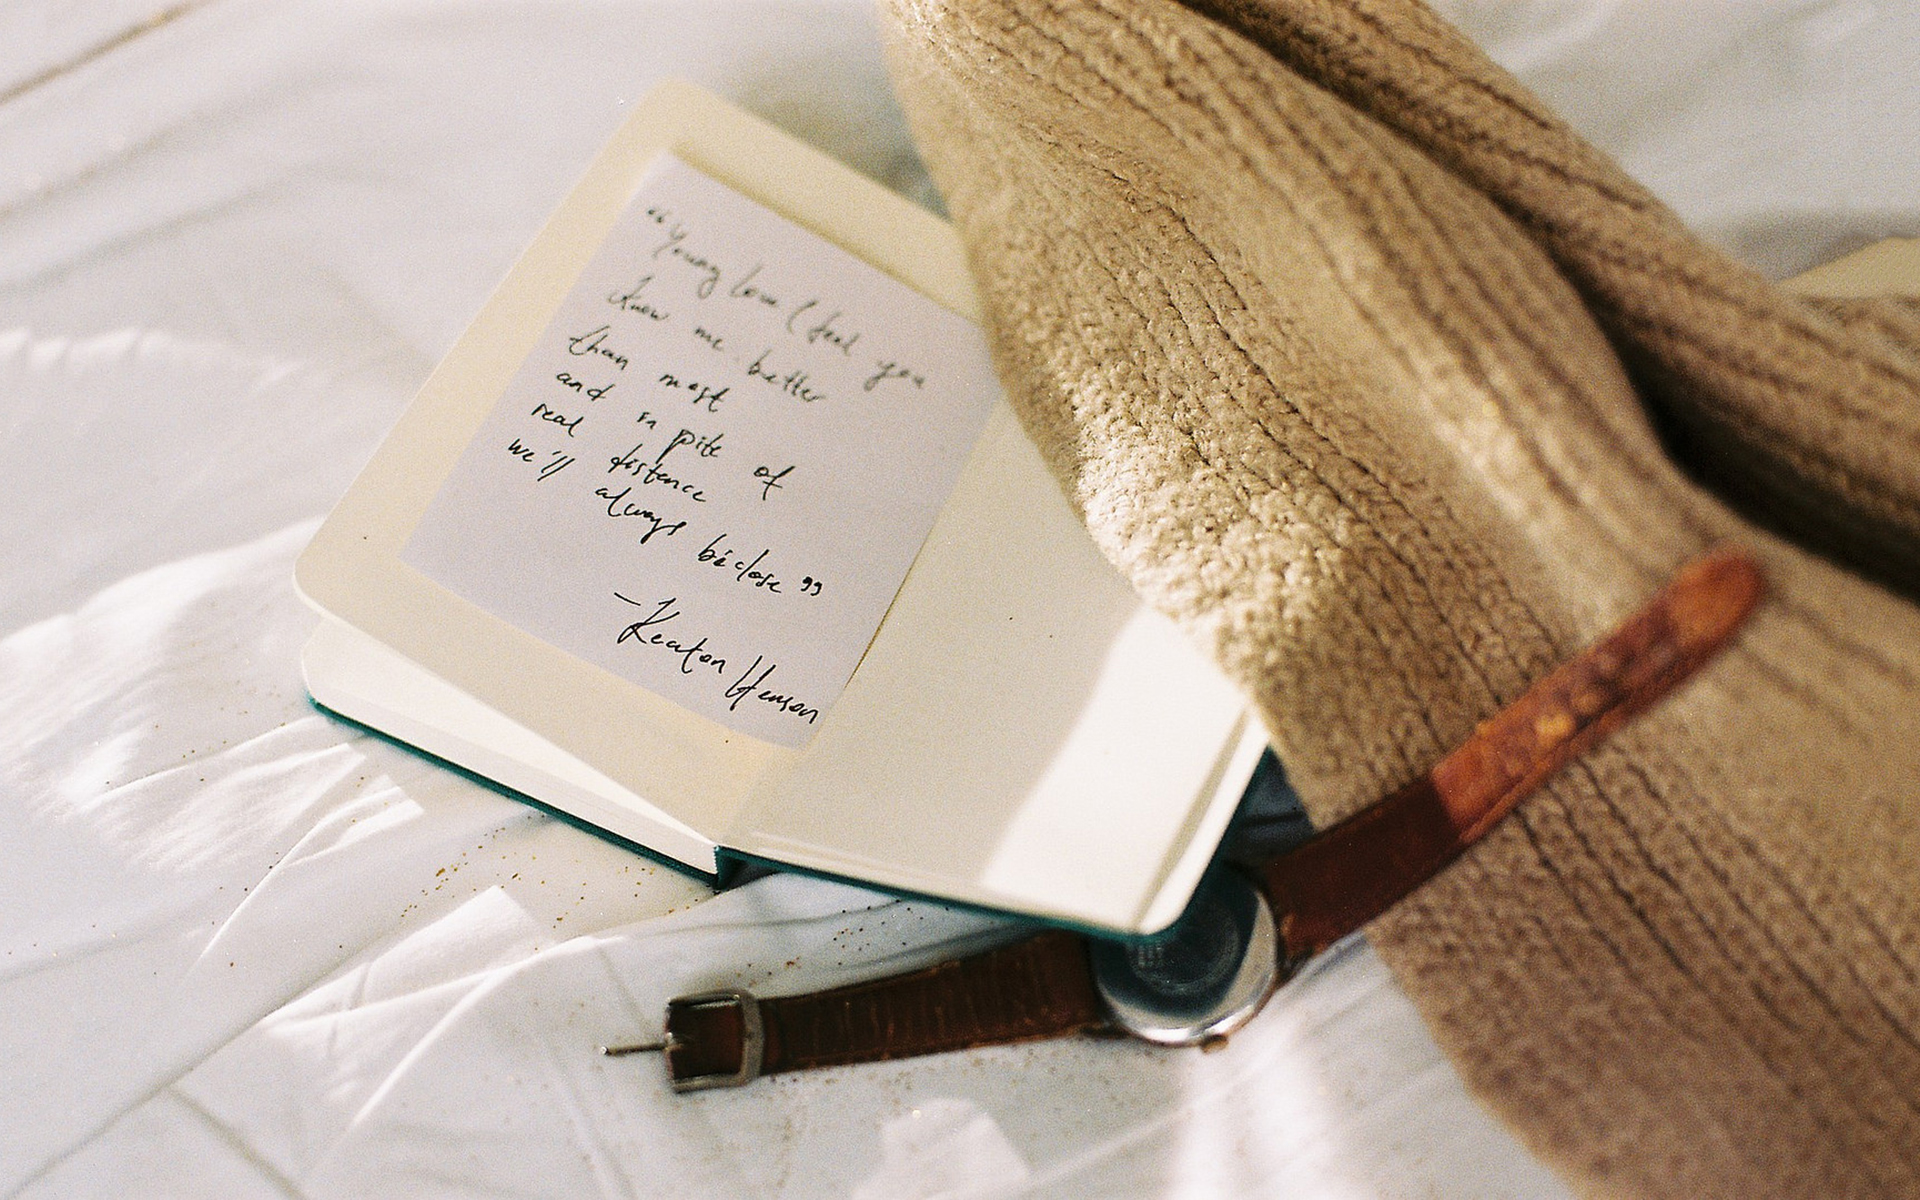 “Young love I feel you
know me better
than most
and in pite of
real distence
we'll always be close”
–Keaton Henson